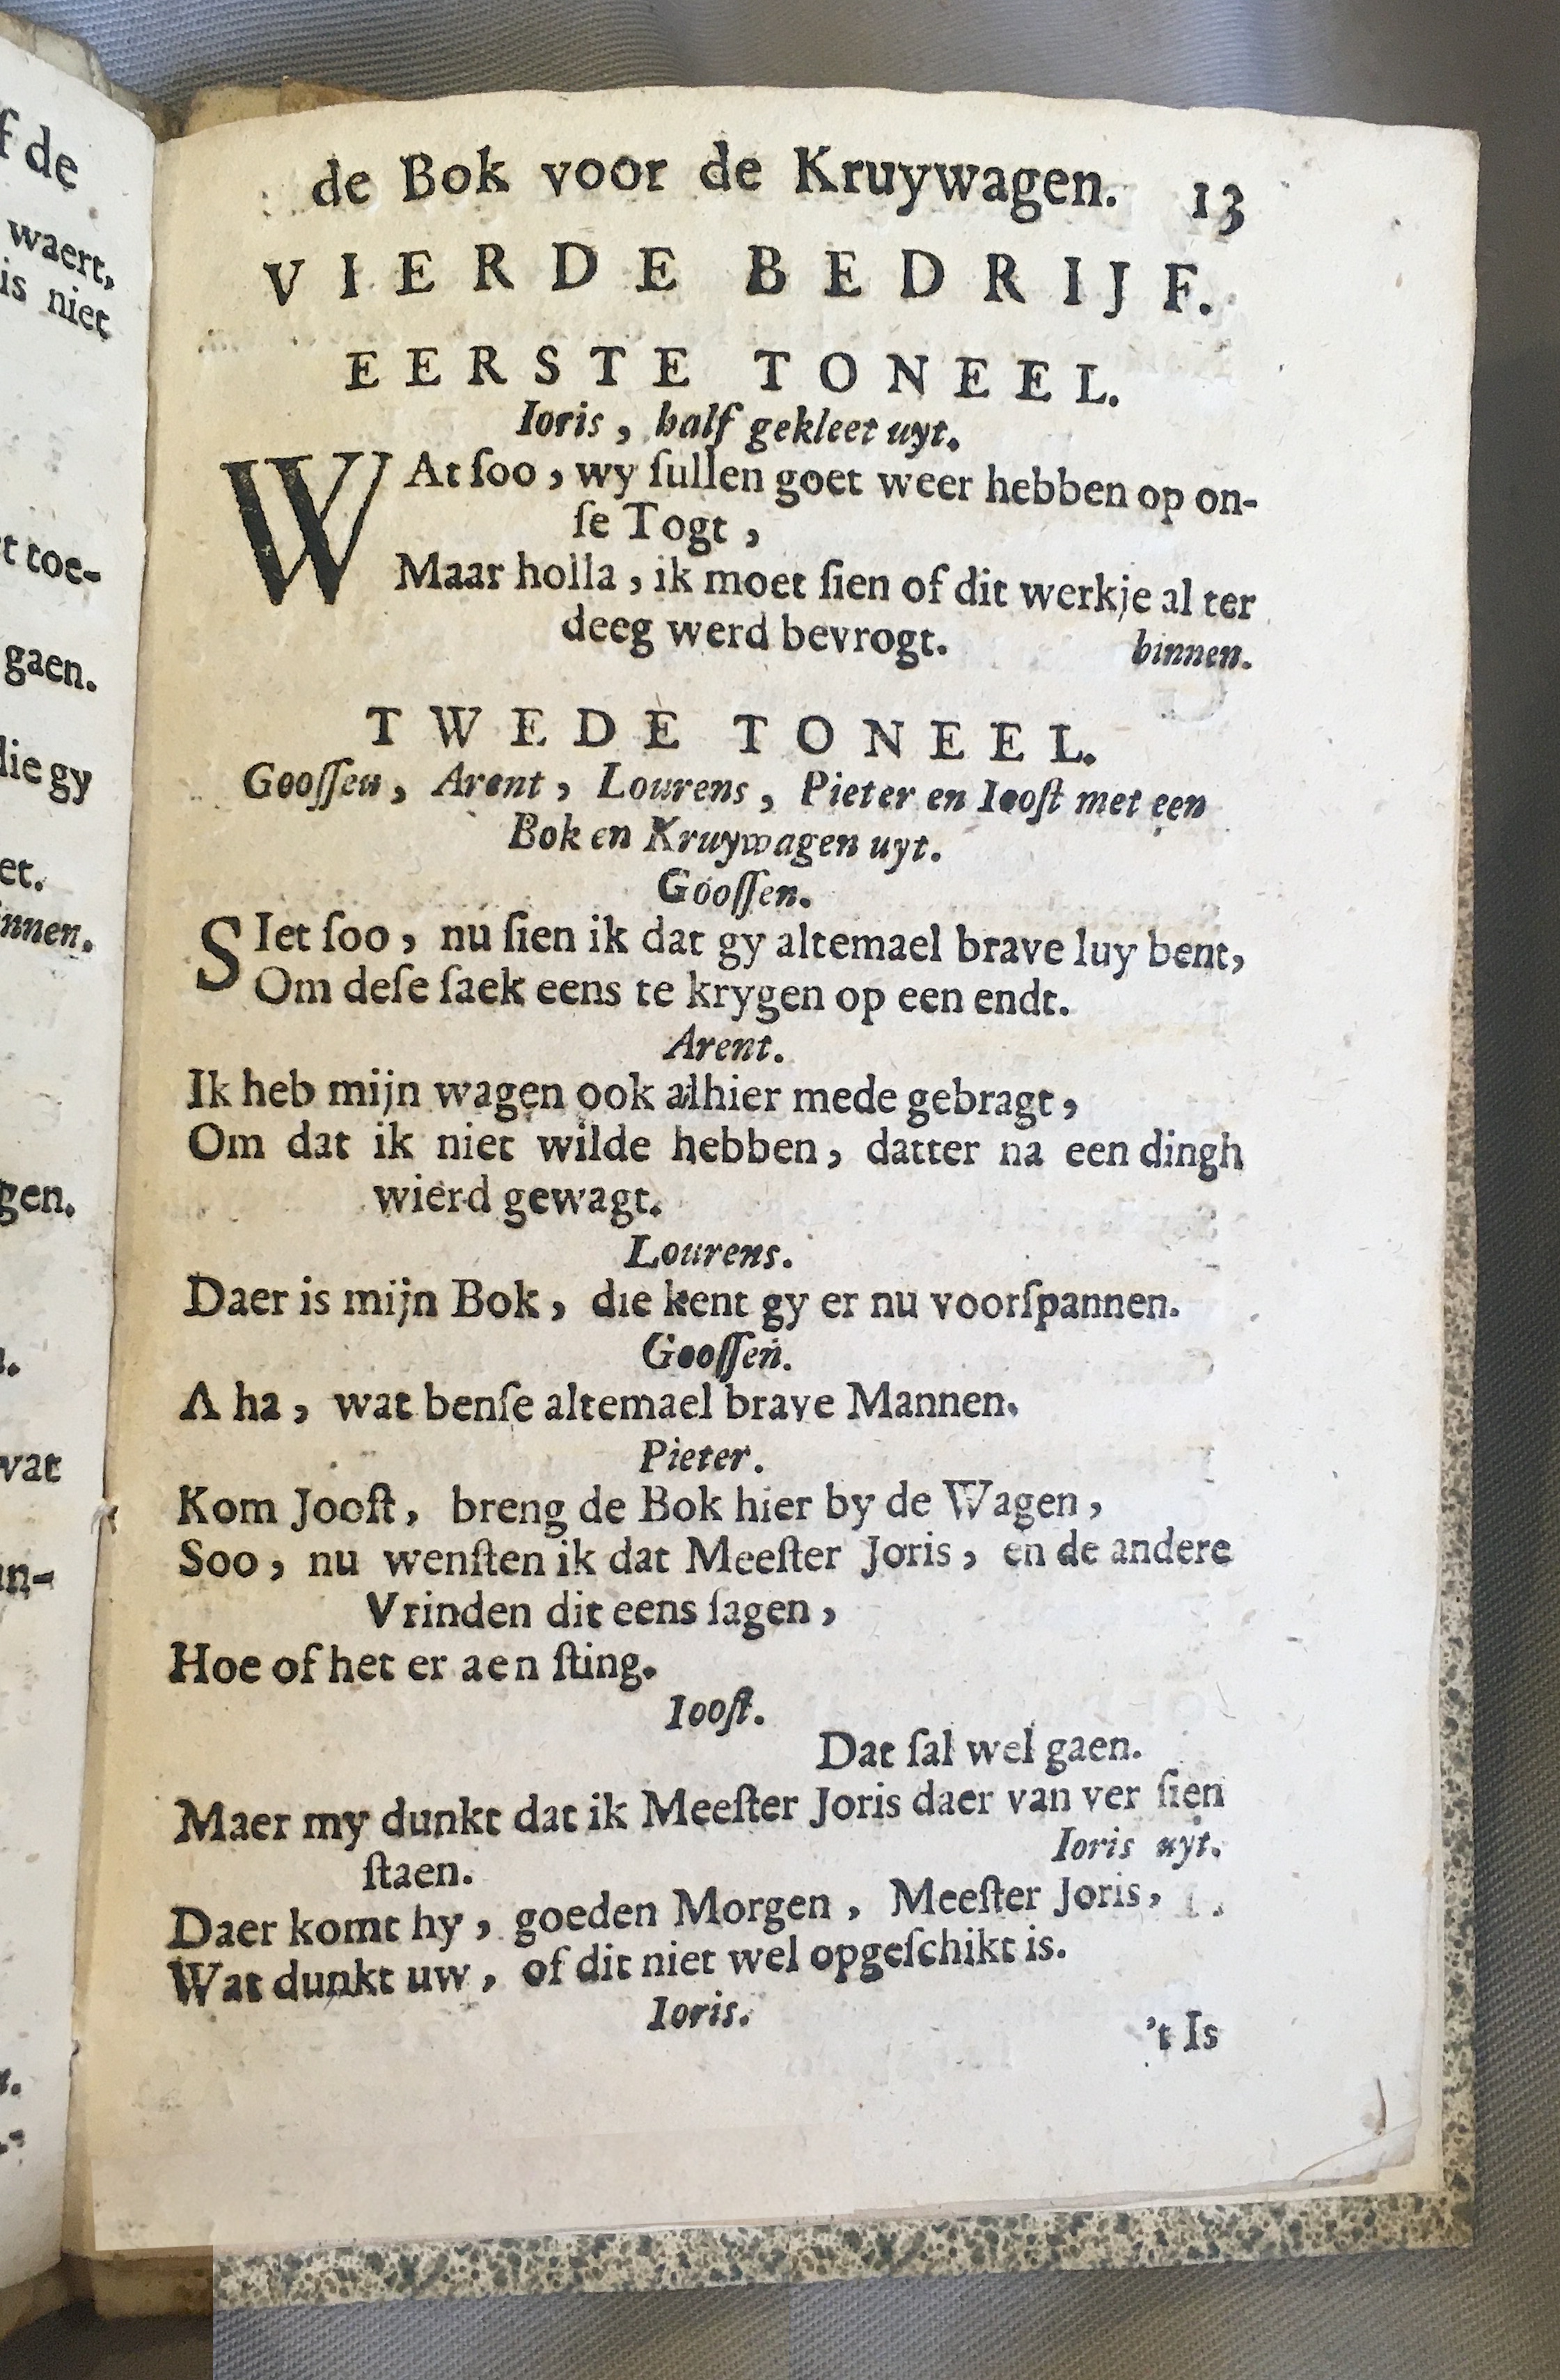 de Bok voor de Kruywagen. 13
VIERDE BEDRIJF.
EERSTE TONEEL.
Ioris, half gekleet uyt.
WAt ſoo, wy ſullen goet weer hebben op on-
ſe Togt,
Maar holla, ik moet ſien of dit werkje al ter
deeg werd bevrogt. binnen.
TWEDE TONEEL.
Gooſſen, Arent, Lourens, Pieter en Iooſt met een
Bok en Kruywagen uyt.
Gooſſen.
SIet ſoo, nu ſien ik dat gy altemael brave luy bent,
Om deſe ſaek eens te krygen op een endt.
Arent.
Ik heb mijn wagen ook alhier mede gebragt,
Om dat ik niet wilde hebben, datter na een dingh
wierd gewagt.
Lourens.
Daer is mijn Bok, die kent gy er nu voorſpannen.
Gooſſen.
A ha, wat benſe altemael brave Mannen.
Pieter.
Kom Jooſt, breng de Bok hier by de Wagen,
Soo, nu wenſten ik dat Meeſter Joris, en de andere
Vrinden dit eens ſagen,
Hoe of het er aen ſting.
Iooſt.
Dat ſal wel gaen.
Maer my dunkt dat ik Meeſter Joris daer van ver ſien
ſtaen. Ioris uyt.
Daer komt hy, goeden Morgen, Meeſter Joris,
Wat dunkt uw, of dit niet wel opgeſchikt is.
Ioris.
't Is
f de
waert,
is niet
t toe-
gaen.
die gy
et.
innen.
gen.
wat